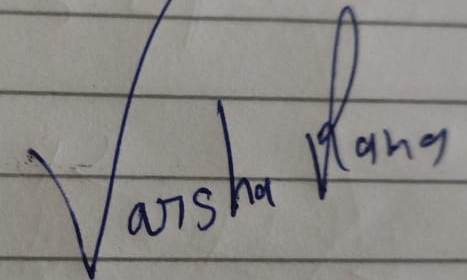 Varsha Rana